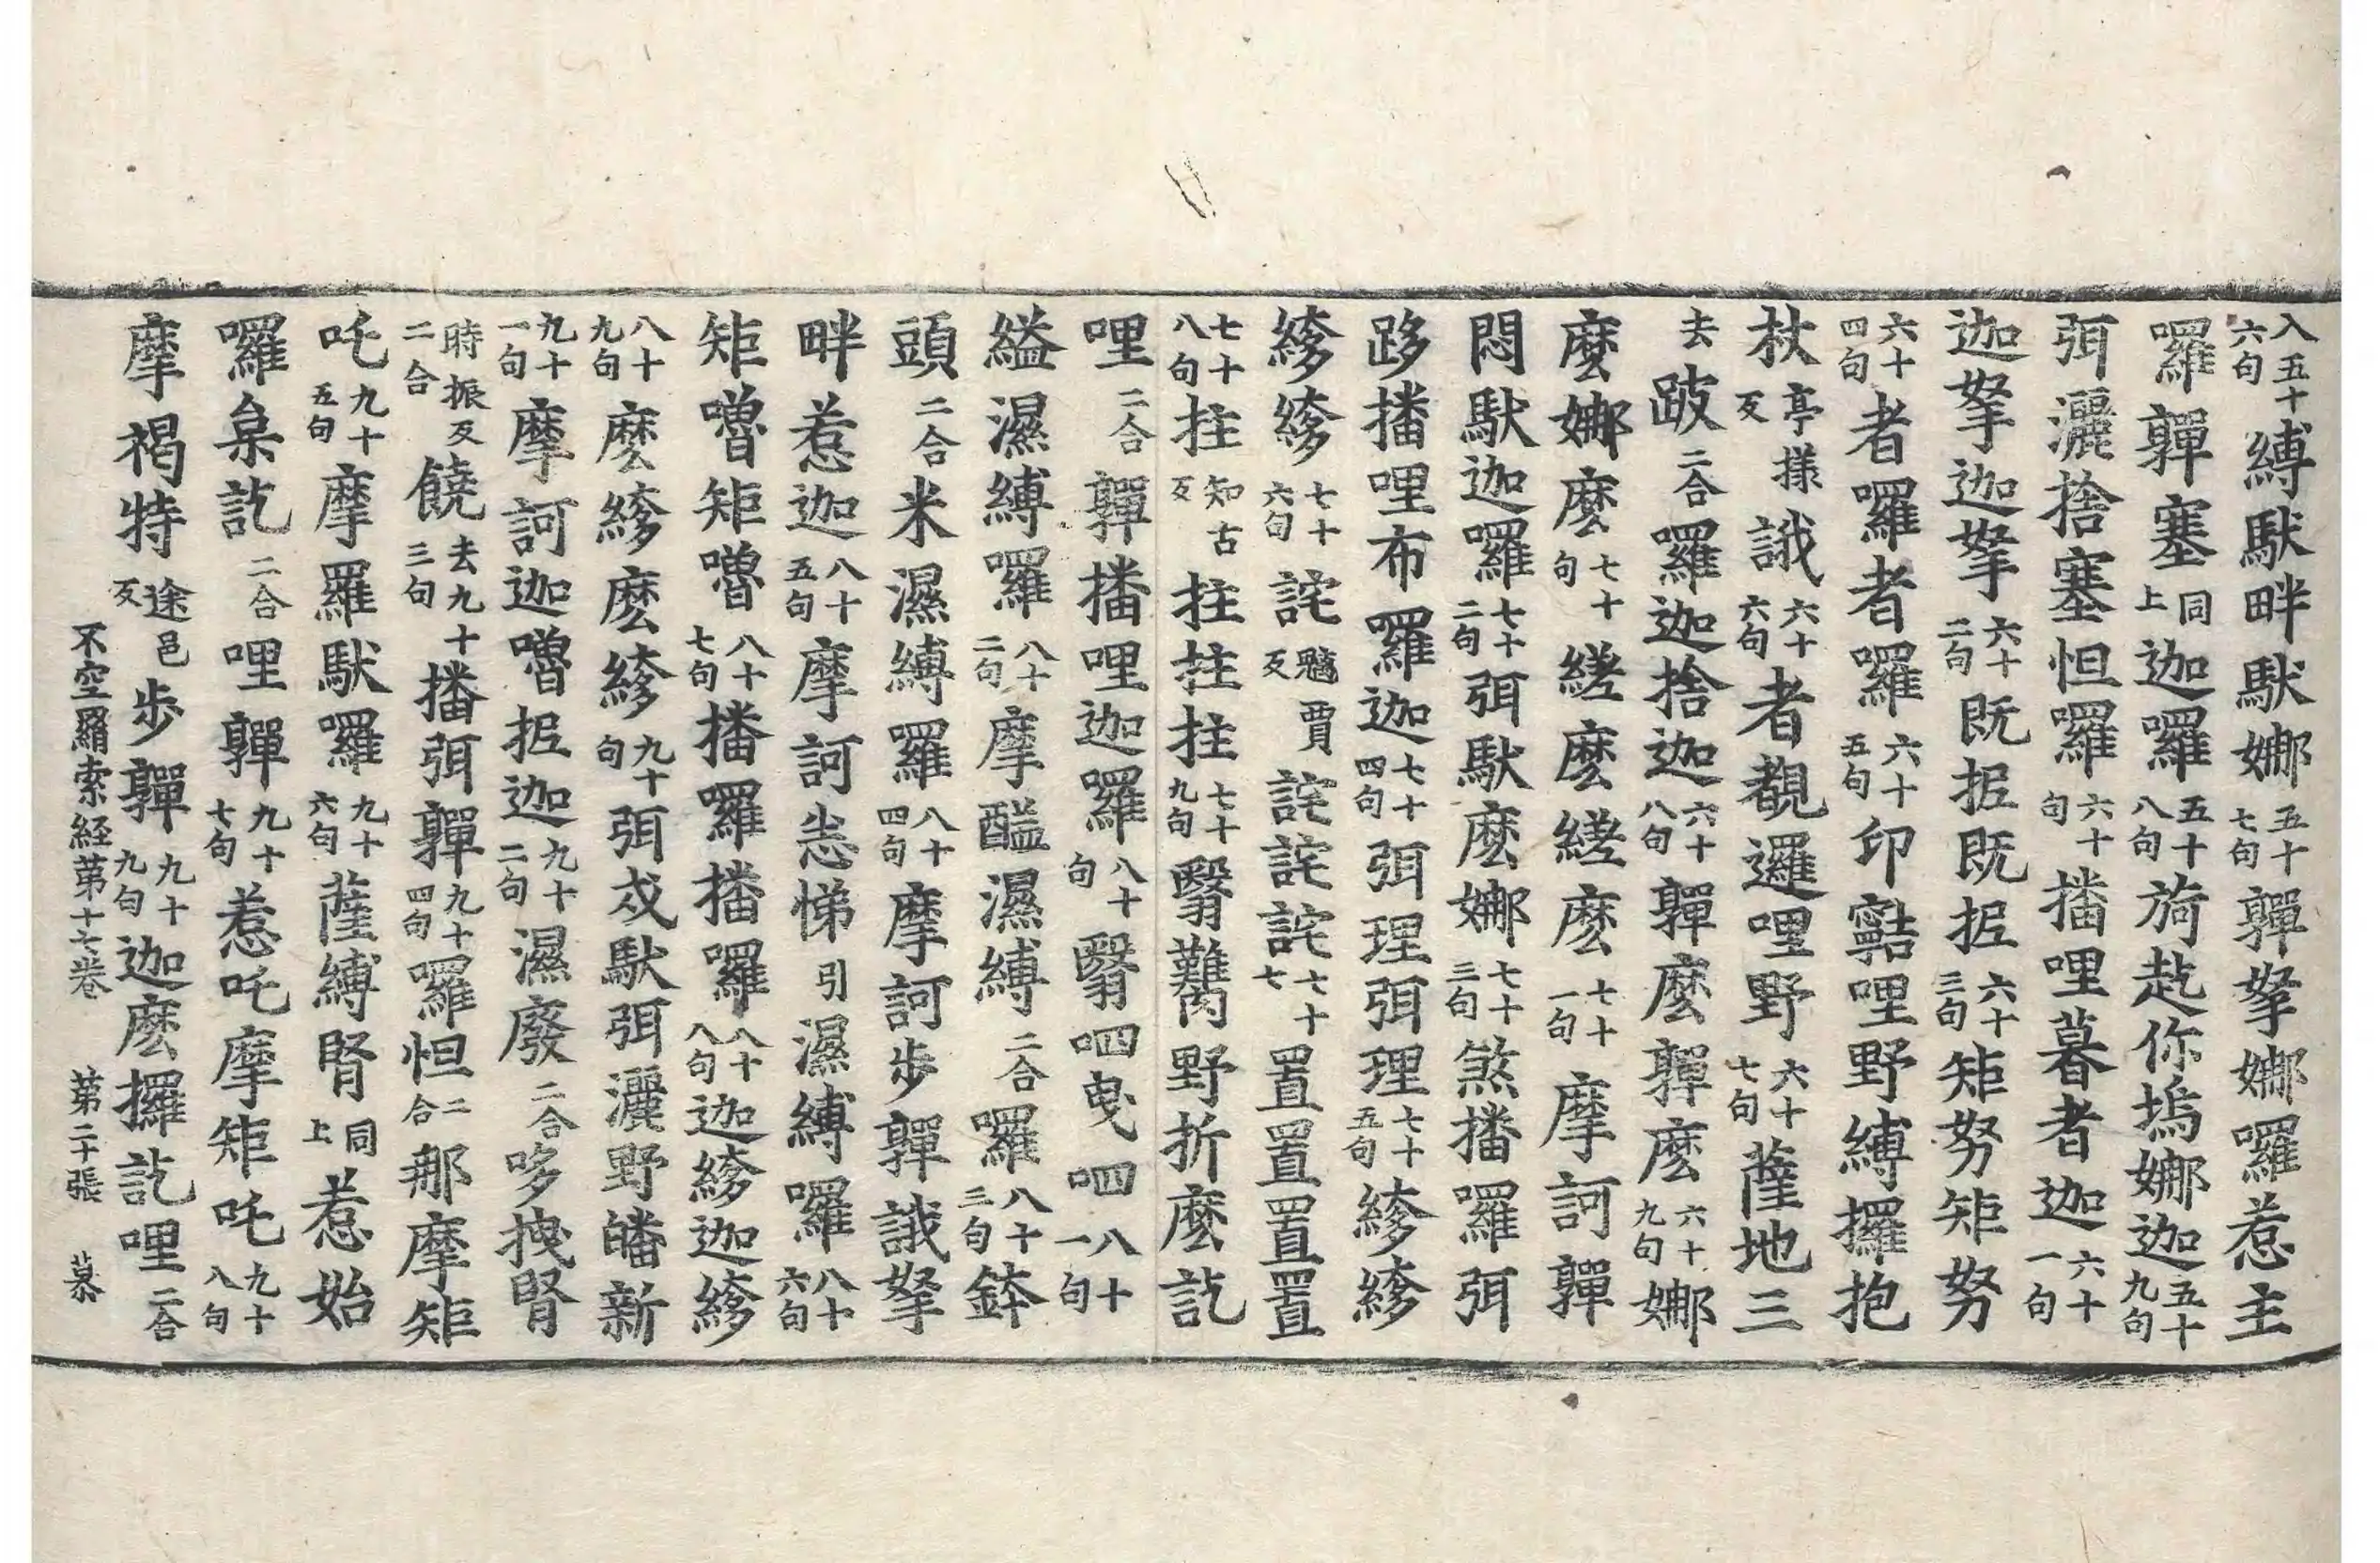 入五十六句縛馱畔馱娜五十七句嚲拏娜囉惹主
囉嚲塞同上迦囉五十八句旖趒你塢娜迦五十九句
弭灑捨塞怛囉六十句播哩暮者迦六十一句
迦拏迦拏六十二句既抳既抳六十三句矩努矩努
六十四句者囉者囉六十五句印㘓哩野縛攞抱
杖亭様反誐六十六句者覩邏哩野六十七句薩地三
去跛二合羅迦捨迦六十八句嚲麼嚲麼六十九句娜
麼娜麼七十句縒麼縒麼七十一句摩訶嚲
悶馱迦囉七十二句弭馱麼娜七十三句煞播囉弭
跢播哩布羅迦七十四句弭理弭理七十五句縿縿
縿縿七十六句詫魑賈反詫詫詫七十七置置置置
七十八句拄知古反拄拄拄七十九句翳難野折麼訖
哩二合嚲播哩迦囉八十句翳呬曳呬八十一句
縊濕縛囉八十二句摩醯濕縛二合囉八十三句鉢
頭二合米濕縛囉八十四句摩訶步嚲誐拏
畔惹迦八十五句摩訶悉悌引濕縛囉八十六句
矩嚕矩嚕八十七句播囉播囉八十八句迦縿迦縿
八十九句麼縿麼縿九十句弭戍馱弭灑野皤新
九十一句摩訶迦嚕抳迦九十二句濕廢二合哆拽腎
時振反二合饒去九十三句播弭嚲九十四句囉怛二合那摩矩
吒九十五句摩羅馱囉九十六句薩縛腎同上惹始
囉枲訖二合哩嚲九十七句惹吒摩矩吒九十八句
摩褐特途邑反步嚲九十九句迦麼攞訖哩二合
不空羂索経苐十七卷 苐二十張 慕